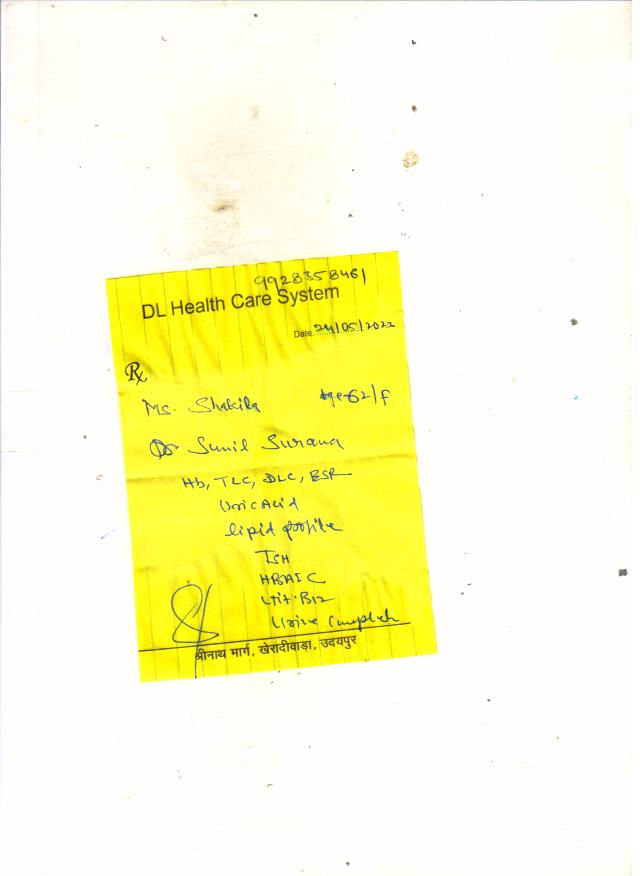 9928358461
DL Health Care System
Date 24/05/2022
Rx
Ms. Shakila Age-62/f
Dr Sunil Surana
Hb, TLC, DLC, ESR
Uric Acid
lipid profile
TSH
HBA1C
Vit. B12
Urine Complete
श्रीनाथ मार्ग, खेरादीवाड़ा, उदयपुर